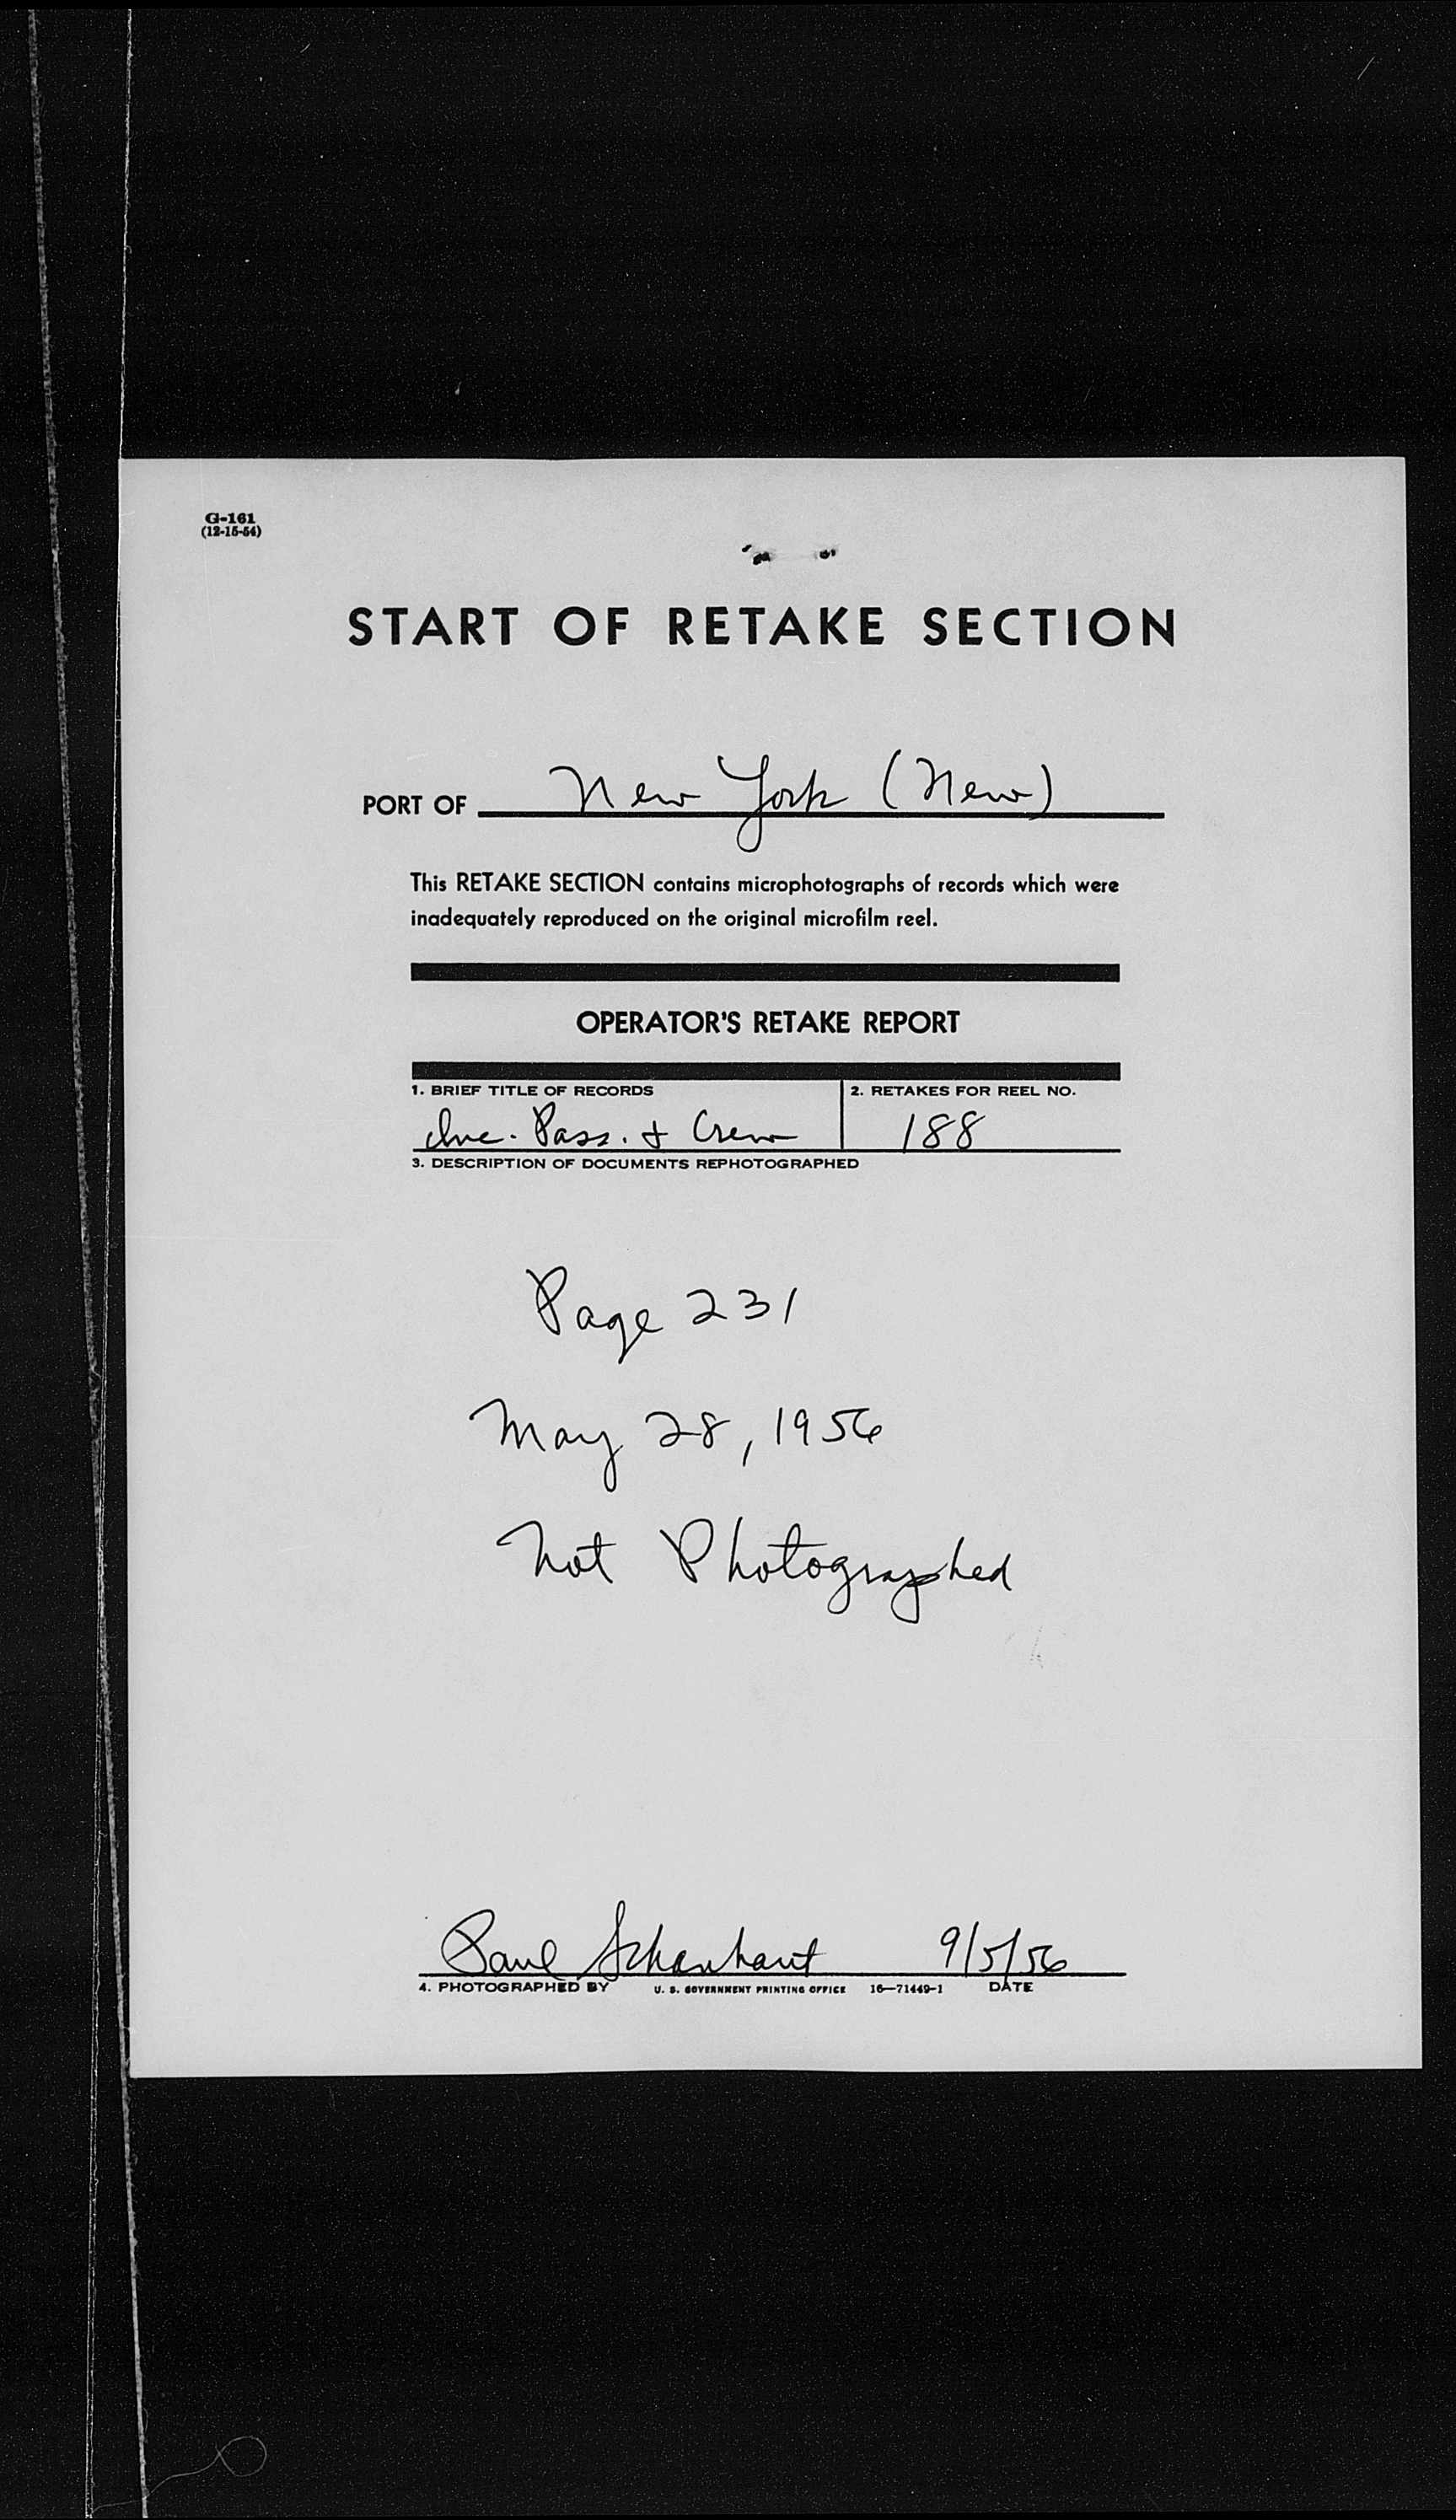 G-161
(12-15-54)
START OF RETAKE SECTION
PORT OF New York (New)
This RETAKE SECTION contains microphotographs of records which were
inadequately reproduced on the original microfilm reel.
OPERATOR'S RETAKE REPORT
1. BRIEF TITLE OF RECORDS 2. RETAKES FOR REEL NO.
Inc. Pass. & Crew 188
3. DESCRIPTION OF DOCUMENTS REPHOTOGRAPHED
Page 231
May 28, 1956
Not Photographed
Paul 9/5/56
4. PHOTOGRAPHED BY U. S. GOVERNMENT PRINTING OFFICE 16—71449-1 DATE